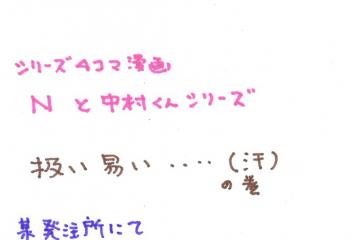 シリーズ4コマ漫画
Nと中村くんシリーズ
扱い易い‥‥(汗)
の巻
某発注所にて